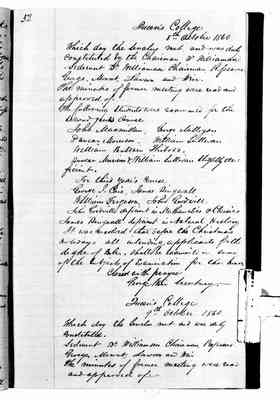 32
Queen's College
8th October 1860
Which day the Senatus met and was duly
Constituted by the Chairman Dr Williamson
Sederunt Dr Williamson Chairman Professors
George, Mowat, Lawson and Weir.
The minutes of former meeting were read and
approved of.
The following Students were examined for the
Second Year's Course
John Macmillan, George Milligan
Duncan Morrison William Sullivan
William
Duncan Morrison & William Sullivan slightly de-
ficient.
For third year's Course,
James
William Ferguson, John
deficient in Mathematics & Classics
James deficient in Natural Philosophy
It was resolved that before the Christmas
holidays all intending applicants for the
degree of shall be examined on some
of the subjects of Examination for the
Closed with prayer
George Weir Secretary.
Queen's College
9th October 1860
Which day the Senatus met and was duly
Constituted.
Sederunt Dr Williamson Chairman Professors
George, Mowat, Lawson and Weir
The minutes of former meeting were read
and approved of.